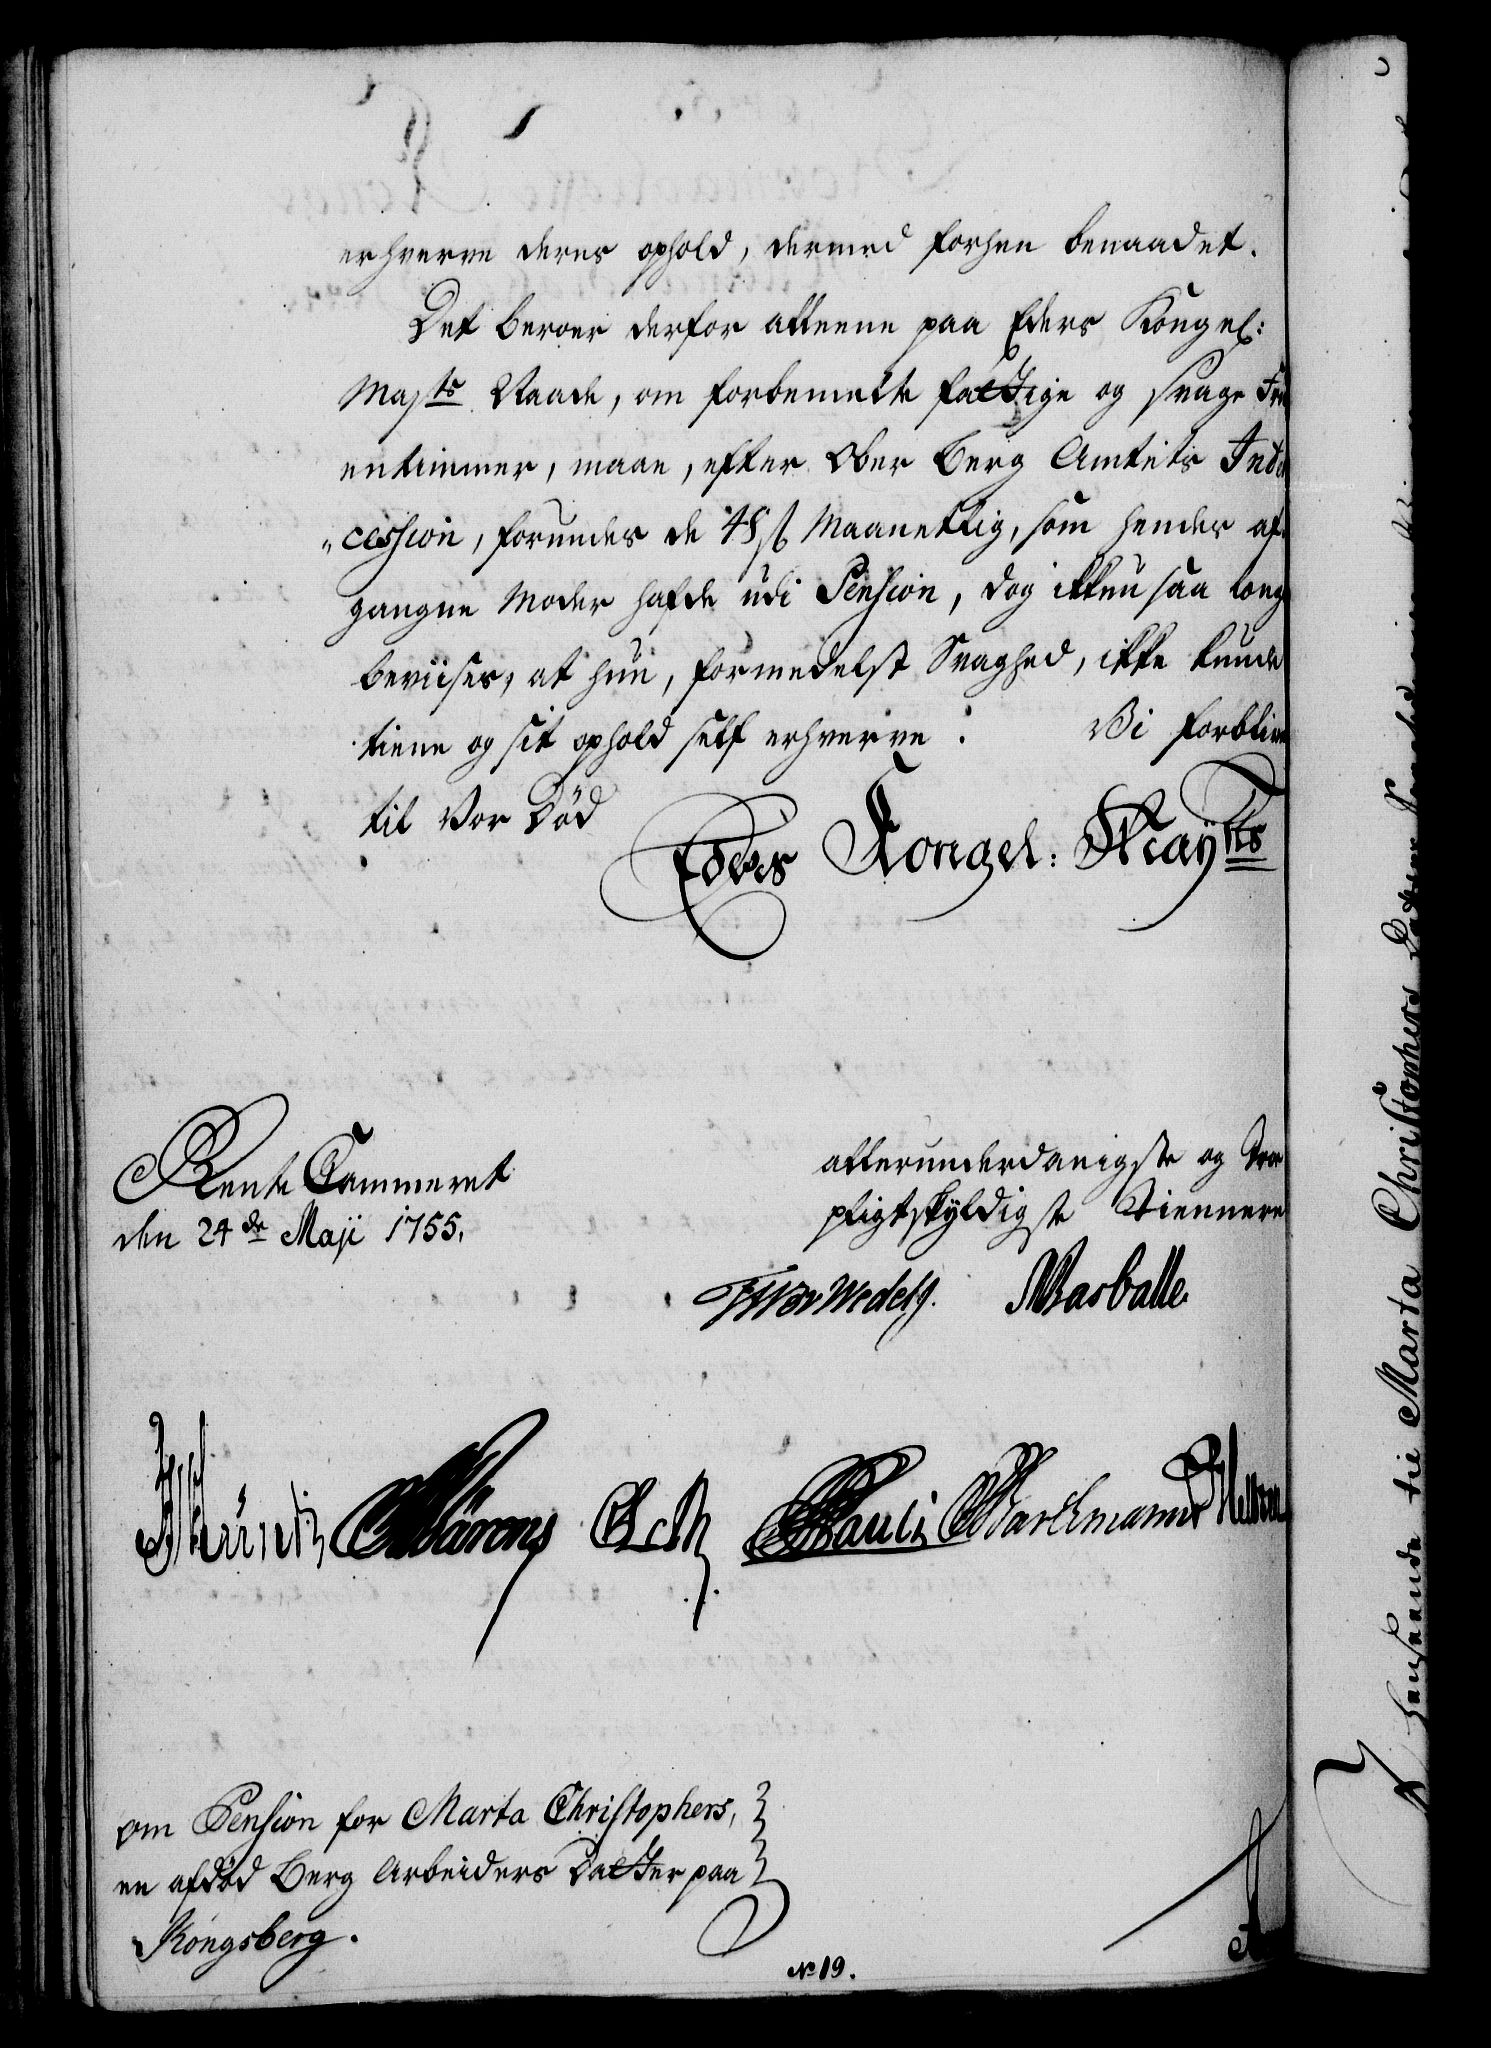 erhverve deres ophold, dermed forhen benaadet.
Det beroer derfor alleene paa Eders Kongel:
Majts Naade, om forbemelte fattige og svage Fru
entimmer, maae, efter Ober Berg Amtets Inter
"cession, forundes de 48 ß Maanetlig, som hendes af
gangne Moder hafde udi Pension, dog ikkun saa længe
beviises, at hun, formedelst Svaghed, ikke kunde
tiene og sit ophold self erhverve. Vi forblive
til Vor Død
Eders Kongel: Mayts
Rente Cammeret
den 24de Maji 1755.
allerunderdanigste og troe
pligtskyldigste Tiennere
Wedel
Masballe
Pauli
Barchmann
om Pension for Marta Christophers,
en afdød Berg Arbeiders Datter paa
Kongsberg.
No 19.
henseende til Marta Christophers